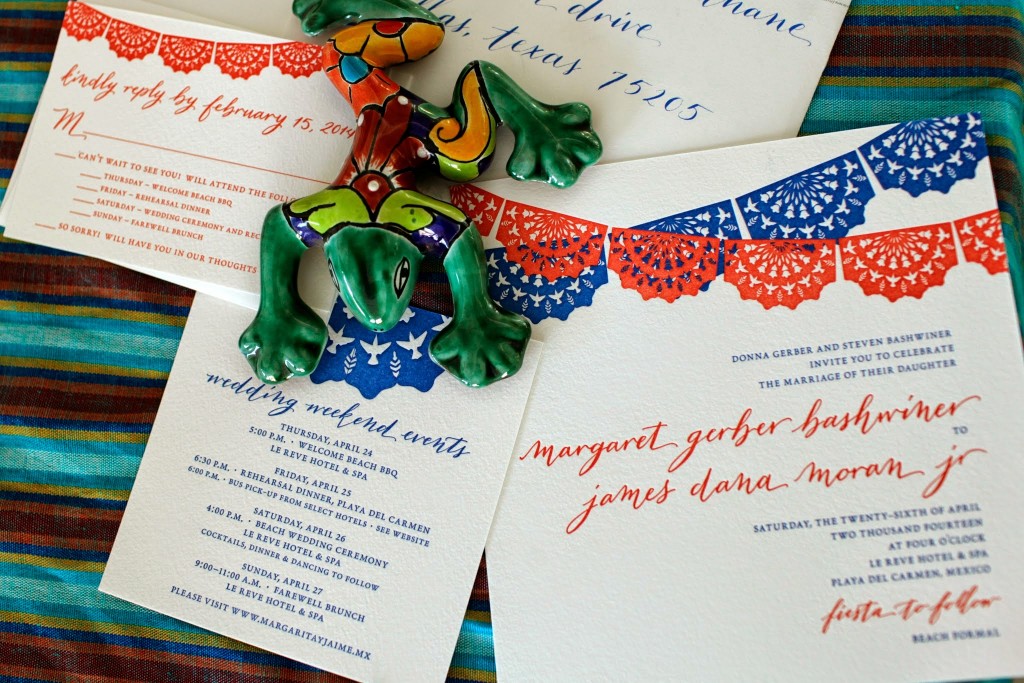 kindly reply by february 15, 2014
M
CAN'T WAIT TO SEE YOU! WILL ATTEND THE
THURSDAY – WELCOME BEACH BBQ
FRIDAY – REHEARSAL DINNER
SATURDAY – WEDDING CEREMONY AND
SUNDAY – FAREWELL BRUNCH
SO SORRY! WILL HAVE YOU IN OUR THOUGHTS
drive
texas 75205
wedding weekend events
THURSDAY, APRIL 24
5:00 P.M. • WELCOME BEACH BBQ
LE REVE HOTEL & SPA
FRIDAY, APRIL 25
6:30 P.M. • REHEARSAL DINNER, PLAYA DEL CARMEN
6:00 P.M. • BUS PICK-UP FROM SELECT HOTELS • SEE WEBSITE
SATURDAY, APRIL 26
4:00 P.M. • BEACH WEDDING CEREMONY
LE REVE HOTEL & SPA
COCKTAILS, DINNER & DANCING TO FOLLOW
SUNDAY, APRIL 27
9:00–11:00 A.M. • FAREWELL BRUNCH
LE REVE HOTEL & SPA
PLEASE VISIT WWW.MARGARITAYJAIME.MX
DONNA GERBER AND STEVEN BASHWINER
INVITE YOU TO CELEBRATE
THE MARRIAGE OF THEIR DAUGHTER
margaret gerber bashwiner
TO
james dana moran jr
SATURDAY, THE TWENTY-SIXTH OF APRIL
TWO THOUSAND FOURTEEN
AT FOUR O'CLOCK
LE REVE HOTEL & SPA
PLAYA DEL CARMEN, MEXICO
fiesta to follow
BEACH FORMAL